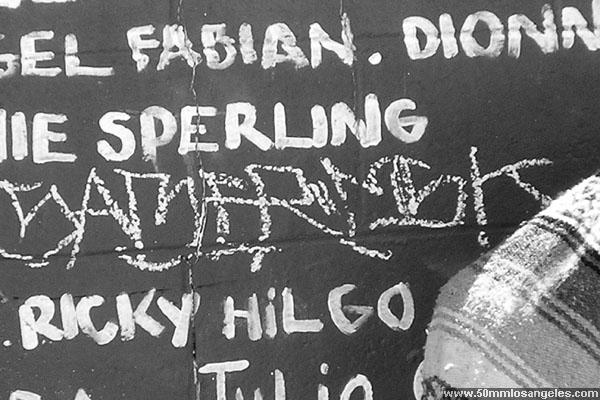 GEL FABIAN. DIONN
NIE SPERLING
. RICKY HILGO
TULIO
www.50mmlosangeles.com